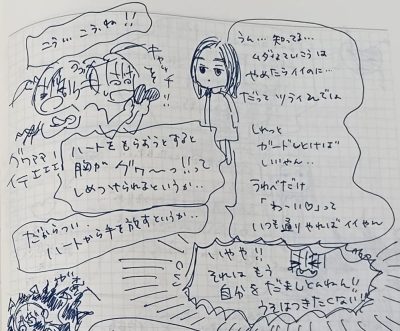 こう…こう、ね!!
キャッチ
を!!
グワエエ!
イテエエエ!
うん…知ってる…
ムダなていこうは
やめたらイイのに…
だって ツライんでは
しれっと
ガードしとけば
いいやん…
うわべだけ
「わーい♡」って
いつも通りやればイイやん
ハートをもらおうとすると
胸が グワ〜っ!!って
しめつけられるというか…
だからっい…
ハートから手を放すというか…
いやや!!
それは もう
自分を だましとんねん!!
うそはつきたくない!!